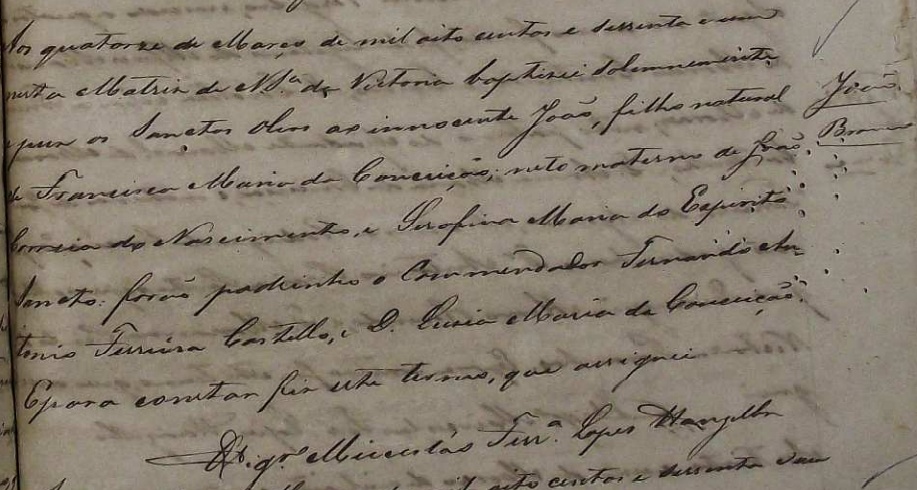 Aos quatorze de Março de mil oito centos e sessenta e um
nesta Matriz de N. Sª. da Victoria baptizei solemnemente
e puz os Sanctos Oleos ao innocente João, filho natural
de Francisca Maria da Conceição, neto materno de João
Correia do Nascimento, e Serafina Maria do Espirito
Sancto: forão padrinhos o Commendador Fernando An-
tonio Ferreira Castello, e D. Luzia Maria da Conceição.
E para constar fiz este termo, que assignei
Ferrª. Lopes
oito centos e sessenta e um
João
Branco